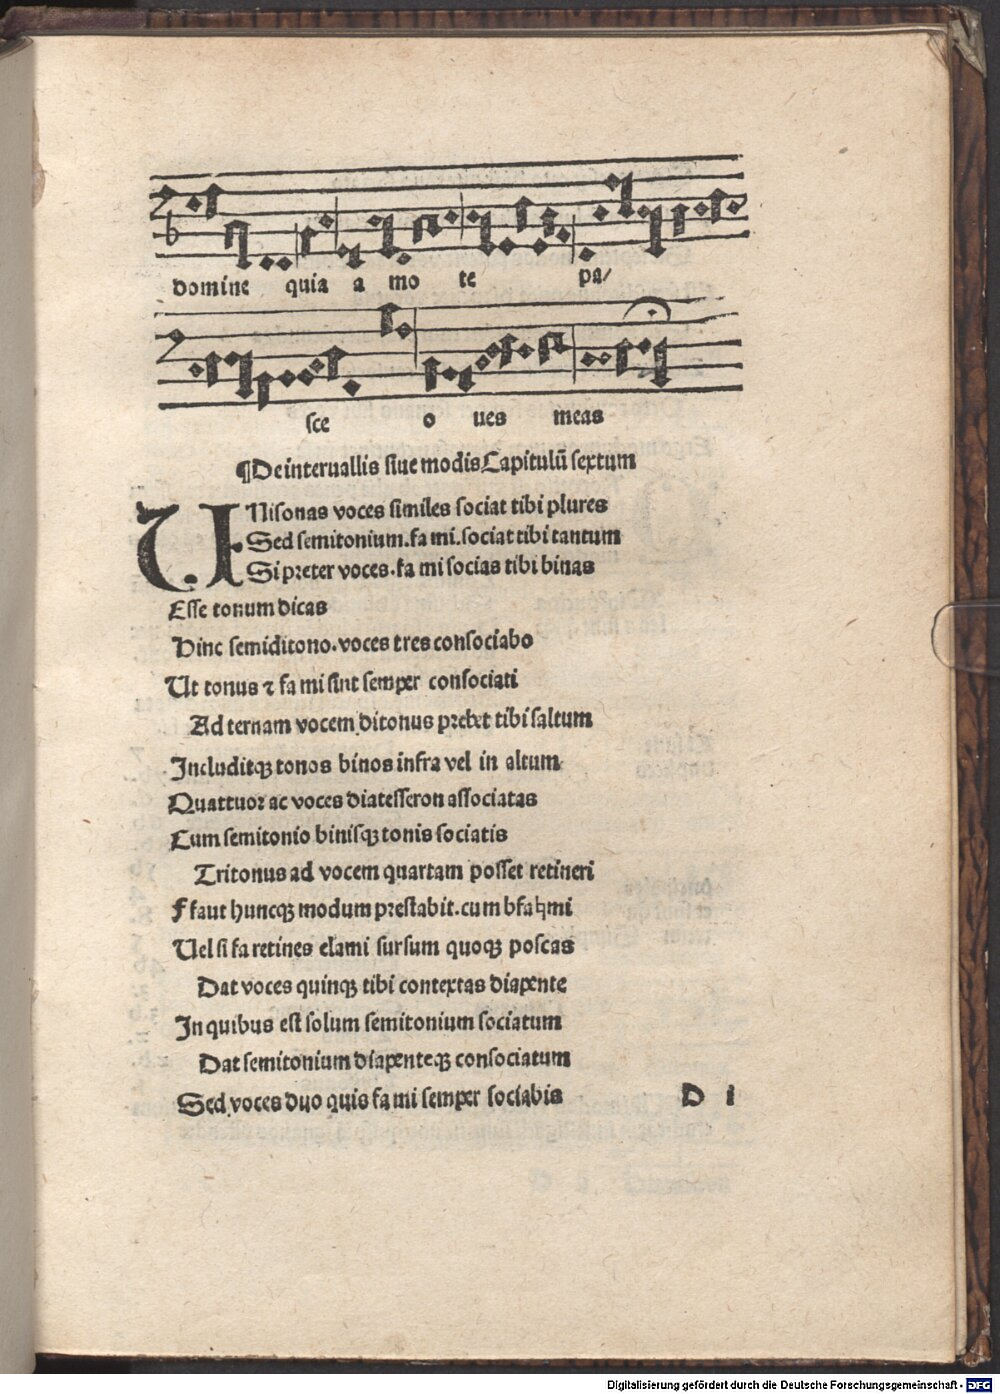 domine quia a mo te pa/
sce o ues meas
¶De interuallis siue modis Capitulū sextum
UNisonas voces similes sociat tibi plures
Sed semitonium.fa mi.sociat tibi tantum
Si preter voces.fa mi socias tibi binas
Esse tonum dicas
Hinc semiditono.voces tres consociabo
Ut tonus ⁊ fa mi sint semper consociati
Ad ternam vocem ditonus prebet tibi saltum
Includitqꝫ tonos binos infra vel in altum
Quattuor ac voces diatesseron associatas
Cum semitonio binisqꝫ tonis sociatis
Tritonus ad vocem quartam posset retineri
F faut huncqꝫ modum prestabit.cum bfa♮mi
Uel si fa retines elami sursum quoqꝫ poscas
Dat voces quinqꝫ tibi contextas diapente
In quibus est solum semitonium sociatum
Dat semitonium diapenteqꝫ consociatum
Sed voces duo quis fa mi semper sociabis D i
Digitalisierung gefördert durch die Deutsche Forschungsgemeinschaft - DFG